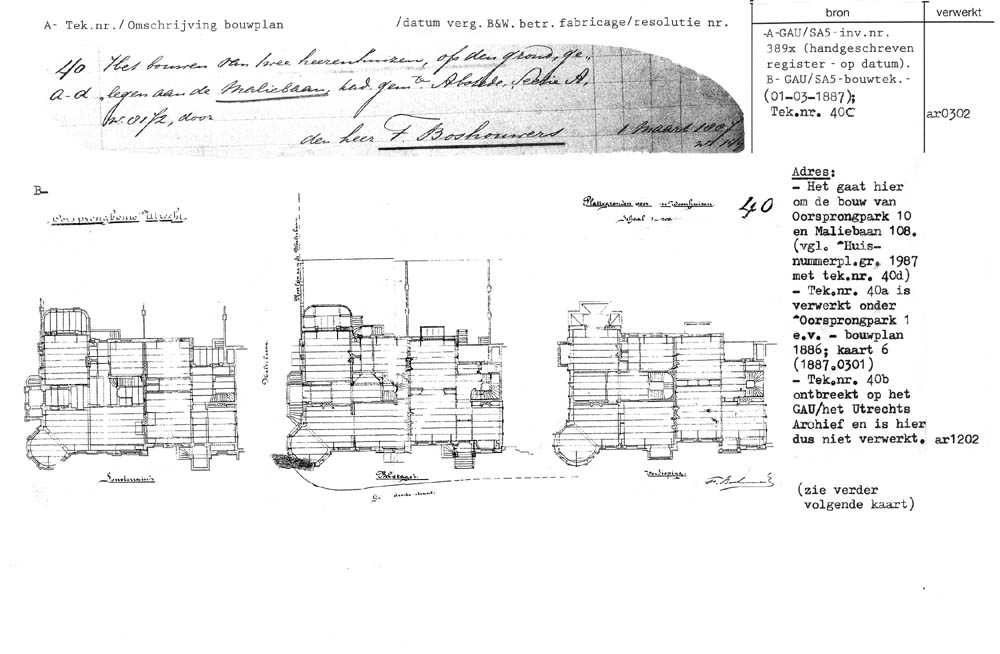 A- Tek.nr./Omschrijving bouwplan /datum verg. B&W. betr. fabricage/resolutie nr.
bron verwerkt
40 Het bouwen van twee heerenhuizen, op den grond, ge-
a-d legen aan de Maliebaan, kad. gemte Abstede, Sectie A,
door
den heer F. Boshouwers 1 Maart
-A-GAU/SA5-inv.nr.
389x (handgeschreven
register - op datum).
B- GAU/SA5-bouwtek.-
(01-03-1887);
Tek.nr. 40C
ar0302
B-
Oorsprongbouw Utrecht.
Plattegronden voor
Schaal
40
Maliebaan
Souterrain
Beletage
Verdieping
Adres:
- Het gaat hier
om de bouw van
Oorsprongpark 10
en Maliebaan 108.
(vgl. ^Huis-
nummerpl.gr. 1987
met tek.nr. 40d)
- Tek.nr. 40a is
verwerkt onder
^Oorsprongpark 1
e.v. - bouwplan
1886; kaart 6
(1887.0301)
- Tek.nr. 40b
ontbreekt op het
GAU/het Utrechts
Archief en is hier
dus niet verwerkt. ar1202
(zie verder
volgende kaart)